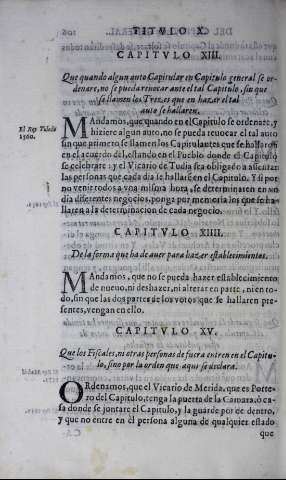 TITVLO X.
CAPITVLO XIII.
Que quando algun auto Capitular en Capitulo general se or-
denare, no se pueda reuocar ante el tal Capitulo, sin que
se llamen los Trezes que en hazer el tal
auto se hallaren.
El Rey Toledo
1560.
MAndamos, que quando en el Capitulo se ordenare, y
hiziere algun auto, no se pueda reuocar el tal auto
sin que primero se llamen los Capitulantes que se hallaron
en el acuerdo del, estando en el Pueblo donde el Capitulo
se celebrare: y el Vicario de Tudia sea obligado a assentar
las personas que cada dia se hallaren en el Capitulo. Y si por
no venir todos a vna misma hora, se determinaren en vn
dia diferentes negocios, ponga por memoria los que se ha-
llaren a la determinacion de cada negocio.
CAPITVLO XIIII.
De la forma que ha de auer para hazer establecimientos.
MAndamos, que no se pueda hazer establecimiento
de nueuo, ni deshazer, ni alterar en parte, ni en to-
do, sin que las dos partes de los votos que se hallaren pre-
sentes, vengan en ello.
CAPITVLO XV.
Que los Fiscales, ni otras personas de fuera entren en el Capitu-
lo, sino por la orden que aqui se declara.
ORdenamos, que el Vicario de Merida, que es Porte-
ro del Capitulo, tenga la puerta de la Camara, ò ca-
sa donde se juntare el Capitulo, y la guarde por de dentro,
y que no entre en el persona alguna de qualquier estado
que